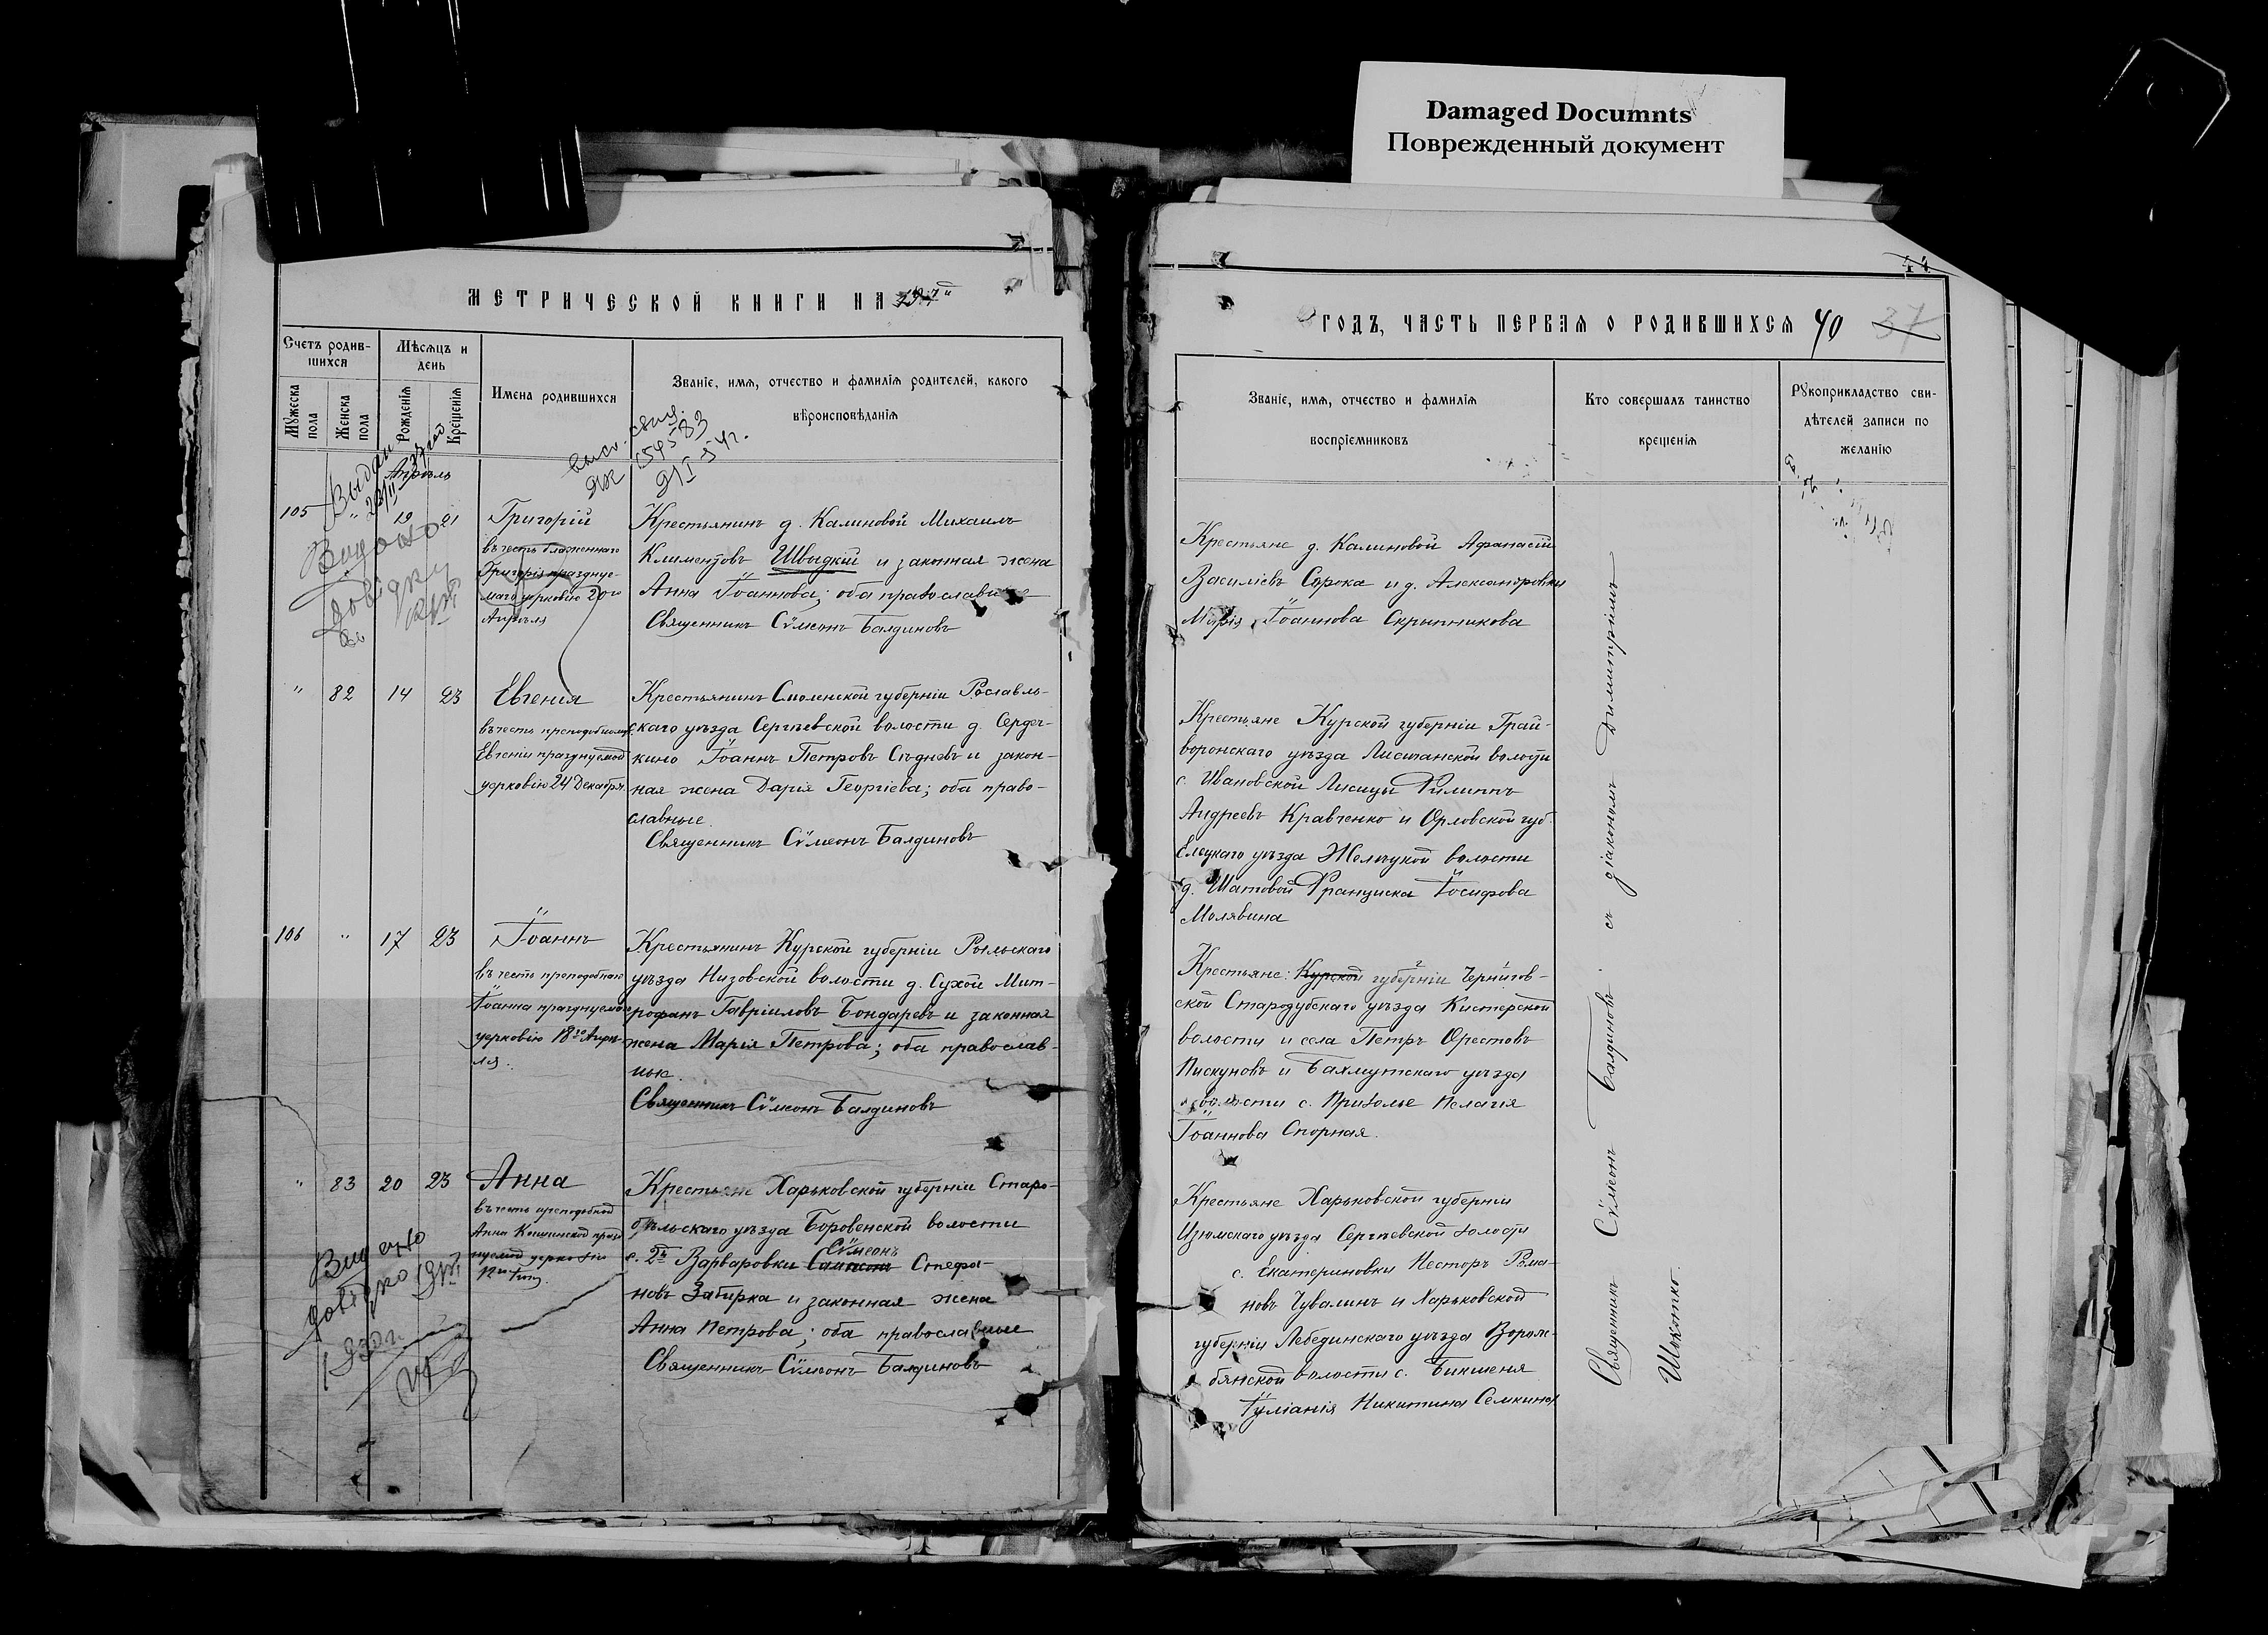 Damaged Documnts
Поврежденный документ
МЕТРИЧЕСКОЙ КНИГИ НА
Счетъ родив-
шихся
Мѣсяцъ и
день
Мужеска
пола
Женска
пола
Рожденія
Крещенія
Имена родившихся
Званіе, имя, отчество и фамилія родителей, какого
вѣроисповѣданія
Апрѣль
105 " 19 21
Григорій
въ честь блаженнаго
Григорія празднуе-
маго церковію 20го
Апрѣля
Крестьянинъ д. Калиновой Михаилъ
Климентовъ Швыдкій и законная жена
Анна Іоаннова; оба православные
Священникъ Сѵмеонъ Балдиновъ
" 82 14 23
Евгенія
въ честь преподобномуч.
Евгеніи празднуемой
церковію 24 Декабря.
Крестьянинъ Смоленской губерніи Рославль-
скаго уѣзда Сергѣевской волости д. Сердеч-
кино Іоаннъ Петровъ Сѣдневъ и закон-
ная жена Дарія Георгіева; оба право-
славные.
Священникъ Сѵмеонъ Балдиновъ
106 " 17 23
Іоаннъ
въ честь преподобнаго
Іоанна празднуемаго
церковію 18го Апрѣ-
ля.
Крестьянинъ Курской губерніи Рыльскаго
уѣзда Низовской волости д. Сухой Мит-
рофанъ Гавріиловъ Бондаревъ и законная
жена Марія Петрова; оба православ-
ные.
Священникъ Сѵмеонъ Балдиновъ
" 83 20 23
Анна
въ честь преподобной
Анны Кашинской празд
нуемой церковію
Крестьяне Харьковской губерніи Старо-
бѣльскаго уѣзда Боровенской волости
Сѵмеонъ
с. 2й Варваровки Стефа-
новъ Забирка и законная жена
Анна Петрова; оба православные
Священникъ Сѵмеонъ Балдиновъ
Выдан
Видано
довідку
Видано
довідку
1930 г.
44
ГОДЪ, ЧАСТЬ ПЕРВАЯ О РОДИВШИХСЯ 40 37
Званіе, имя, отчество и фамилія
воспріемниковъ
Кто совершалъ таинство
крещенія
Рукоприкладство сви-
дѣтелей записи по
желанію
Крестьяне д. Калиновой Афанасій
Василіевъ Сорока и д. Александровки
Марія Іоаннова Скрыпникова
Крестьяне Курской губерніи Грай-
воронскаго уѣзда Лисичанской волости
с. Ивановской Лисицы Филиппъ
Андреевъ Кравченко и Орловской губ.
Елецкаго уѣзда волости
д. Шатовой Франциска Іосифова
Молявина
Крестьяне: Курской губерніи Чернигов-
ской Стародубскаго уѣзда Кистерской
волости и села Петръ Орестовъ
Пискуновъ и Бахмутскаго уѣзда
волости с. Приволье Пелагія
Іоаннова Спорная.
Крестьяне Харьковской губерніи
Изюмскаго уѣзда Сергѣевской волости
с. Екатериновки Несторъ Рома-
новъ Чувалинъ и Харьковской
губерніи Лебединскаго уѣзда Ворож-
бянской волости с. Бишкеня
Іуліанія Никитина Семкина
Священникъ Сѵмеонъ Балдиновъ съ діакономъ Димитріемъ
Шокотко.